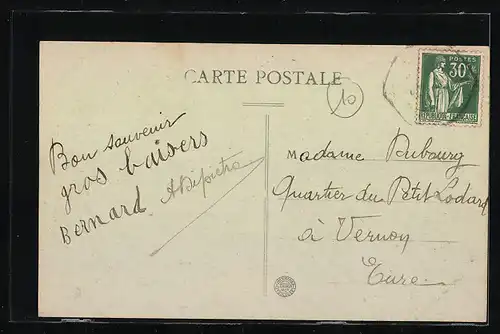 CARTE POSTALE
POSTES
30c
REPUBLIQUE FRANÇAISE
10
Bon souvenir
gros baisers
Bernard
Madame Dubourg
Quartier du Petit Lodard
à Vernon
Eure